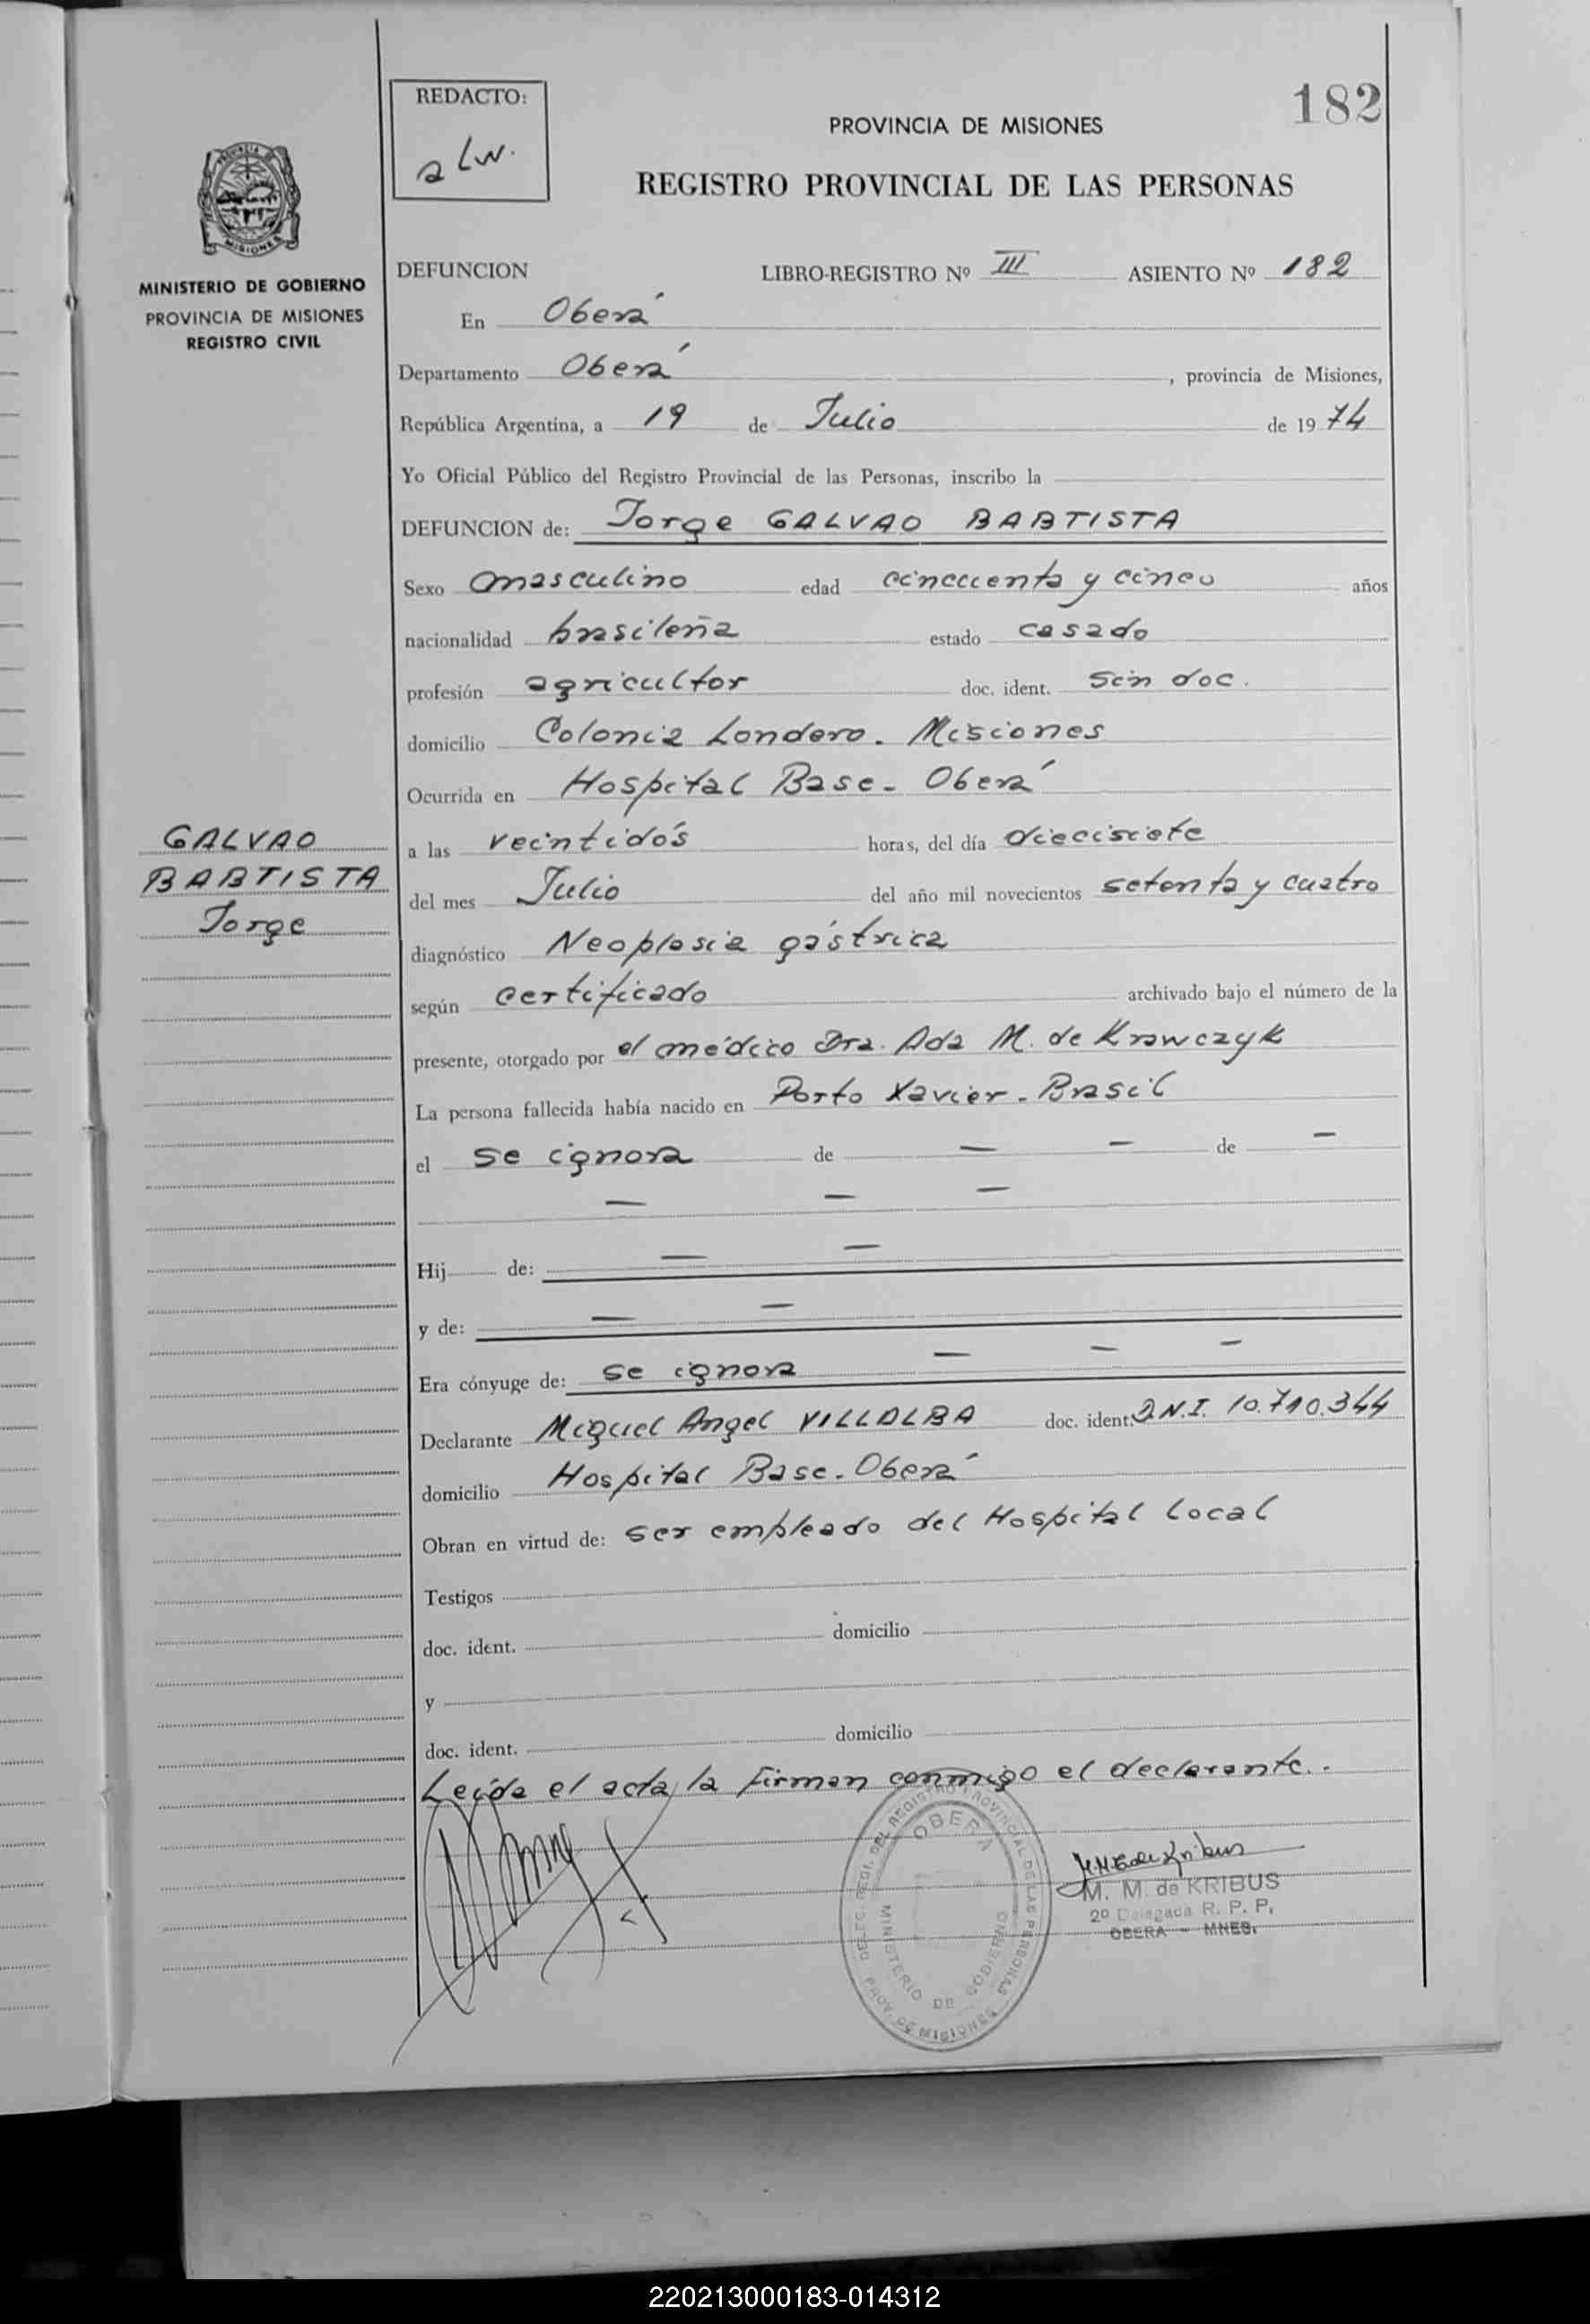 182
REDACTO:
PROVINCIA DE MISIONES
REGISTRO PROVINCIAL DE LAS PERSONAS
MINISTERIO DE GOBIERNO
PROVINCIA DE MISIONES
REGISTRO CIVIL
DEFUNCION LIBRO-REGISTRO Nº III ASIENTO Nº 182
En Oberá
Departamento Oberá , provincia de Misiones,
República Argentina, a 19 de Julio de 1974
Yo Oficial Público del Registro Provincial de las Personas, inscribo la
DEFUNCION de: Jorge GALVAO BABTISTA
Sexo masculino edad cincuenta y cinco años
nacionalidad brasileña estado casado
profesión agricultor doc. ident. Sin doc.
domicilio Colonia Londero. Misiones
Ocurrida en Hospital Base - Oberá
GALVAO
BABTISTA
Jorge
a las veintidós horas, del día diecisiete
del mes Julio del año mil novecientos setenta y cuatro
diagnóstico Neoplasia gástrica
según certificado archivado bajo el número de la
presente, otorgado por el médico Dra. Ada M. de Krawczyk
La persona fallecida había nacido en Porto Xavier - Brasil
el se ignora de — — de —
— — —
Hij de: — —
y de: — —
Era cónyuge de: se ignora — — —
Declarante Miguel Angel VILLALBA doc. ident. D.N.I. 10.710.344
domicilio Hospital Base - Oberá
Obran en virtud de: ser empleado del Hospital Local
Testigos
doc. ident. domicilio
y
doc. ident. domicilio
Leída el acta, la firman conmigo el declarante..
DELEG. REGI. DEL REGISTRO PROVINCIAL DE LAS PERSONAS
OBERA
MINISTERIO DE GOBIERNO
PROV. DE MISIONES
M. M. de KRIBUS
2º Delegada R. P. P.
OBERA - MNES.
220213000183-014312